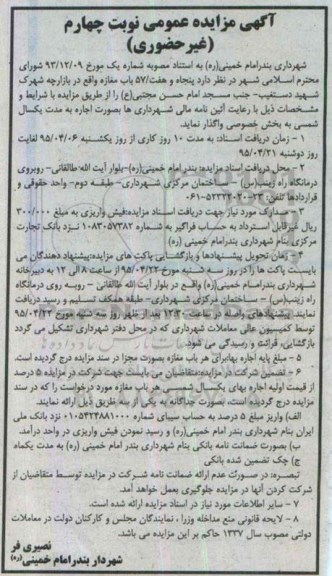 آگهی مزایده عمومی نوبت چهارم
(غیرحضوری)
شهرداری بندرامام خمینی(ره) به استناد مصوبه شماره یک مورخ ۹۳/۱۲/۰۹ شورای
محترم اسلامی شهر در نظر دارد پنجاه و هفت/۵۷ باب مغازه واقع در بازارچه شهرک
شهید دستغیب- جنب مسجد امام حسن مجتبی(ع) را از طریق مزایده با شرایط و
مشخصات ذیل با رعایت آئین نامه مالی شهرداری ها بصورت اجاره به مدت یکسال
شمسی به بخش خصوصی واگذار نماید.
۱ – زمان دریافت اسناد: به مدت ۱۰ روز کاری از روز یکشنبه ۹۵/۰۴/۰۶ لغایت
روز دوشنبه ۹۵/۰۴/۲۱
۲ – محل دریافت اسناد مزایده: بندرامام خمینی(ره)-بلوار آیت الله طالقانی- روبروی
درمانگاه راه زینب(س) – ساختمان مرکزی شهرداری- طبقه دوم- واحد حقوقی و
قراردادها تلفن: ۲۳-۲۰-۵۲۲۲-۰۶۱
۳ – مدارک مورد نیاز جهت دریافت اسناد مزایده:فیش واریزی به مبلغ ۳۰۰/۰۰۰
ریال غیرقابل استرداد به حساب فراگیر به شماره ۱۰۸۳۰۵۷۳۸۲ نزد بانک تجارت
مرکزی بنام شهرداری بندرامام خمینی (ره)
۴ – زمان تحویل پیشنهادها و بازگشایی پاکت های مزایده:پیشنهاد دهندگان می
بایست پاکت ها را در روز سه شنبه مورخ ۹۵/۰۴/۲۲ از ساعت ۸ الی ۱۲ به دبیرخانه
شهرداری بندرامام خمینی(ره) واقع در بلوار آیت الله طالقانی – روبه روی درمانگاه
راه زینب(س) – ساختمان مرکزی شهرداری- طبقه همکف تسلیم و رسید دریافت
نمایند. پیشنهادهای رسیده در ساعت ۱۲:۳۰ بعد از ظهر روز سه شنبه مورخ ۹۵/۰۴/۲۲
توسط کمیسیون عالی معاملات شهرداری که در محل دفتر شهرداری تشکیل می گردد
بازگشایی، قرائت و رسیدگی می شود.
۵ – مبلغ پایه اجاره بهابرای هر باب مغازه بصورت مجزا در سند مزایده درج گردیده است.
۶ – تضمین شرکت در مزایده:متقاضیان می بایست جهت شرکت در مزایده ۵ درصد
از قیمت اولیه اجاره بهای یکسال شمسی هر باب مغازه مورد درخواست را که در سند
مزایده درج گردیده است، بصورت جداگانه به یکی از سه طریق ذیل ارائه نمایند.
الف) واریز مبلغ ۵ درصد به حساب سیبای شماره ۰۱۰۵۴۲۳۸۸۱۰۰۰ نزد بانک ملی
ایران بنام شهرداری بندر امام خمینی(ره) و رسید نمودن فیش واریزی در واحد درآمد.
ب) بصورت ضمانت نامه بانکی بنام شهرداری بندر امام خمینی (ره) به مدت یکماه
ج) چک تضمین شده بانکی
تبصره: در صورت عدم ارائه ضمانت نامه شرکت در مزایده توسط متقاضیان از
شرکت کردن آنها در مزایده جلوگیری بعمل خواهد آمد.
۷ – سایر اطلاعات مورد نیاز در اسناد مزایده ارائه شده است.
۸ – لایحه قانونی منع مداخله وزرا ، نمایندگان مجلس و کارکنان دولت در معاملات
دولتی مصوب سال ۱۳۳۷ حاکم بر این مزایده می باشد.
نصیری فر
شهردار بندرامام خمینی(ره)